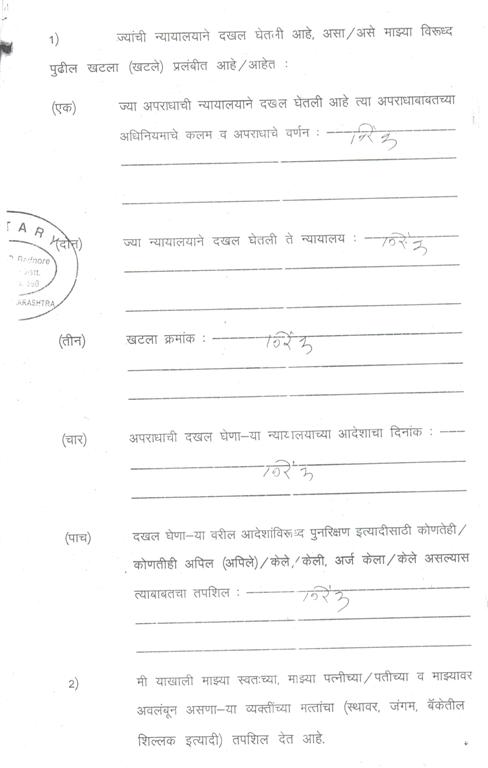 1) ज्यांची न्यायालयाने दखल घेतली आहे, असा/असे माझ्या विरूध्द
पुढील खटला (खटले) प्रलंबीत आहे/आहेत :
(एक) ज्या अपराधाची न्यायालयाने दखल घेतली आहे त्या अपराधाबाबतच्या
अधिनियमाचे कलम व अपराधाचे वर्णन : निरंक
TAR
(दोन) ज्या न्यायालयाने दखल घेतली ते न्यायालय : निरंक
ARASHTRA
(तीन) खटला क्रमांक : निरंक
(चार) अपराधाची दखल घेणा–या न्यायालयाच्या आदेशाचा दिनांक :
निरंक
(पाच) दखल घेणा–या वरील आदेशांविरूध्द पुनरिक्षण इत्यादीसाठी कोणतेही/
कोणतीही अपिल (अपिले)/केले/केली, अर्ज केला/केले असल्यास
त्याबाबतचा तपशिल : निरंक
2) मी याखाली माझ्या स्वतःच्या, माझ्या पत्नीच्या/पतीच्या व माझ्यावर
अवलंबून असणा–या व्यक्तींच्या मत्तांचा (स्थावर, जंगम, बॅकेतील
शिल्लक इत्यादी) तपशिल देत आहे.